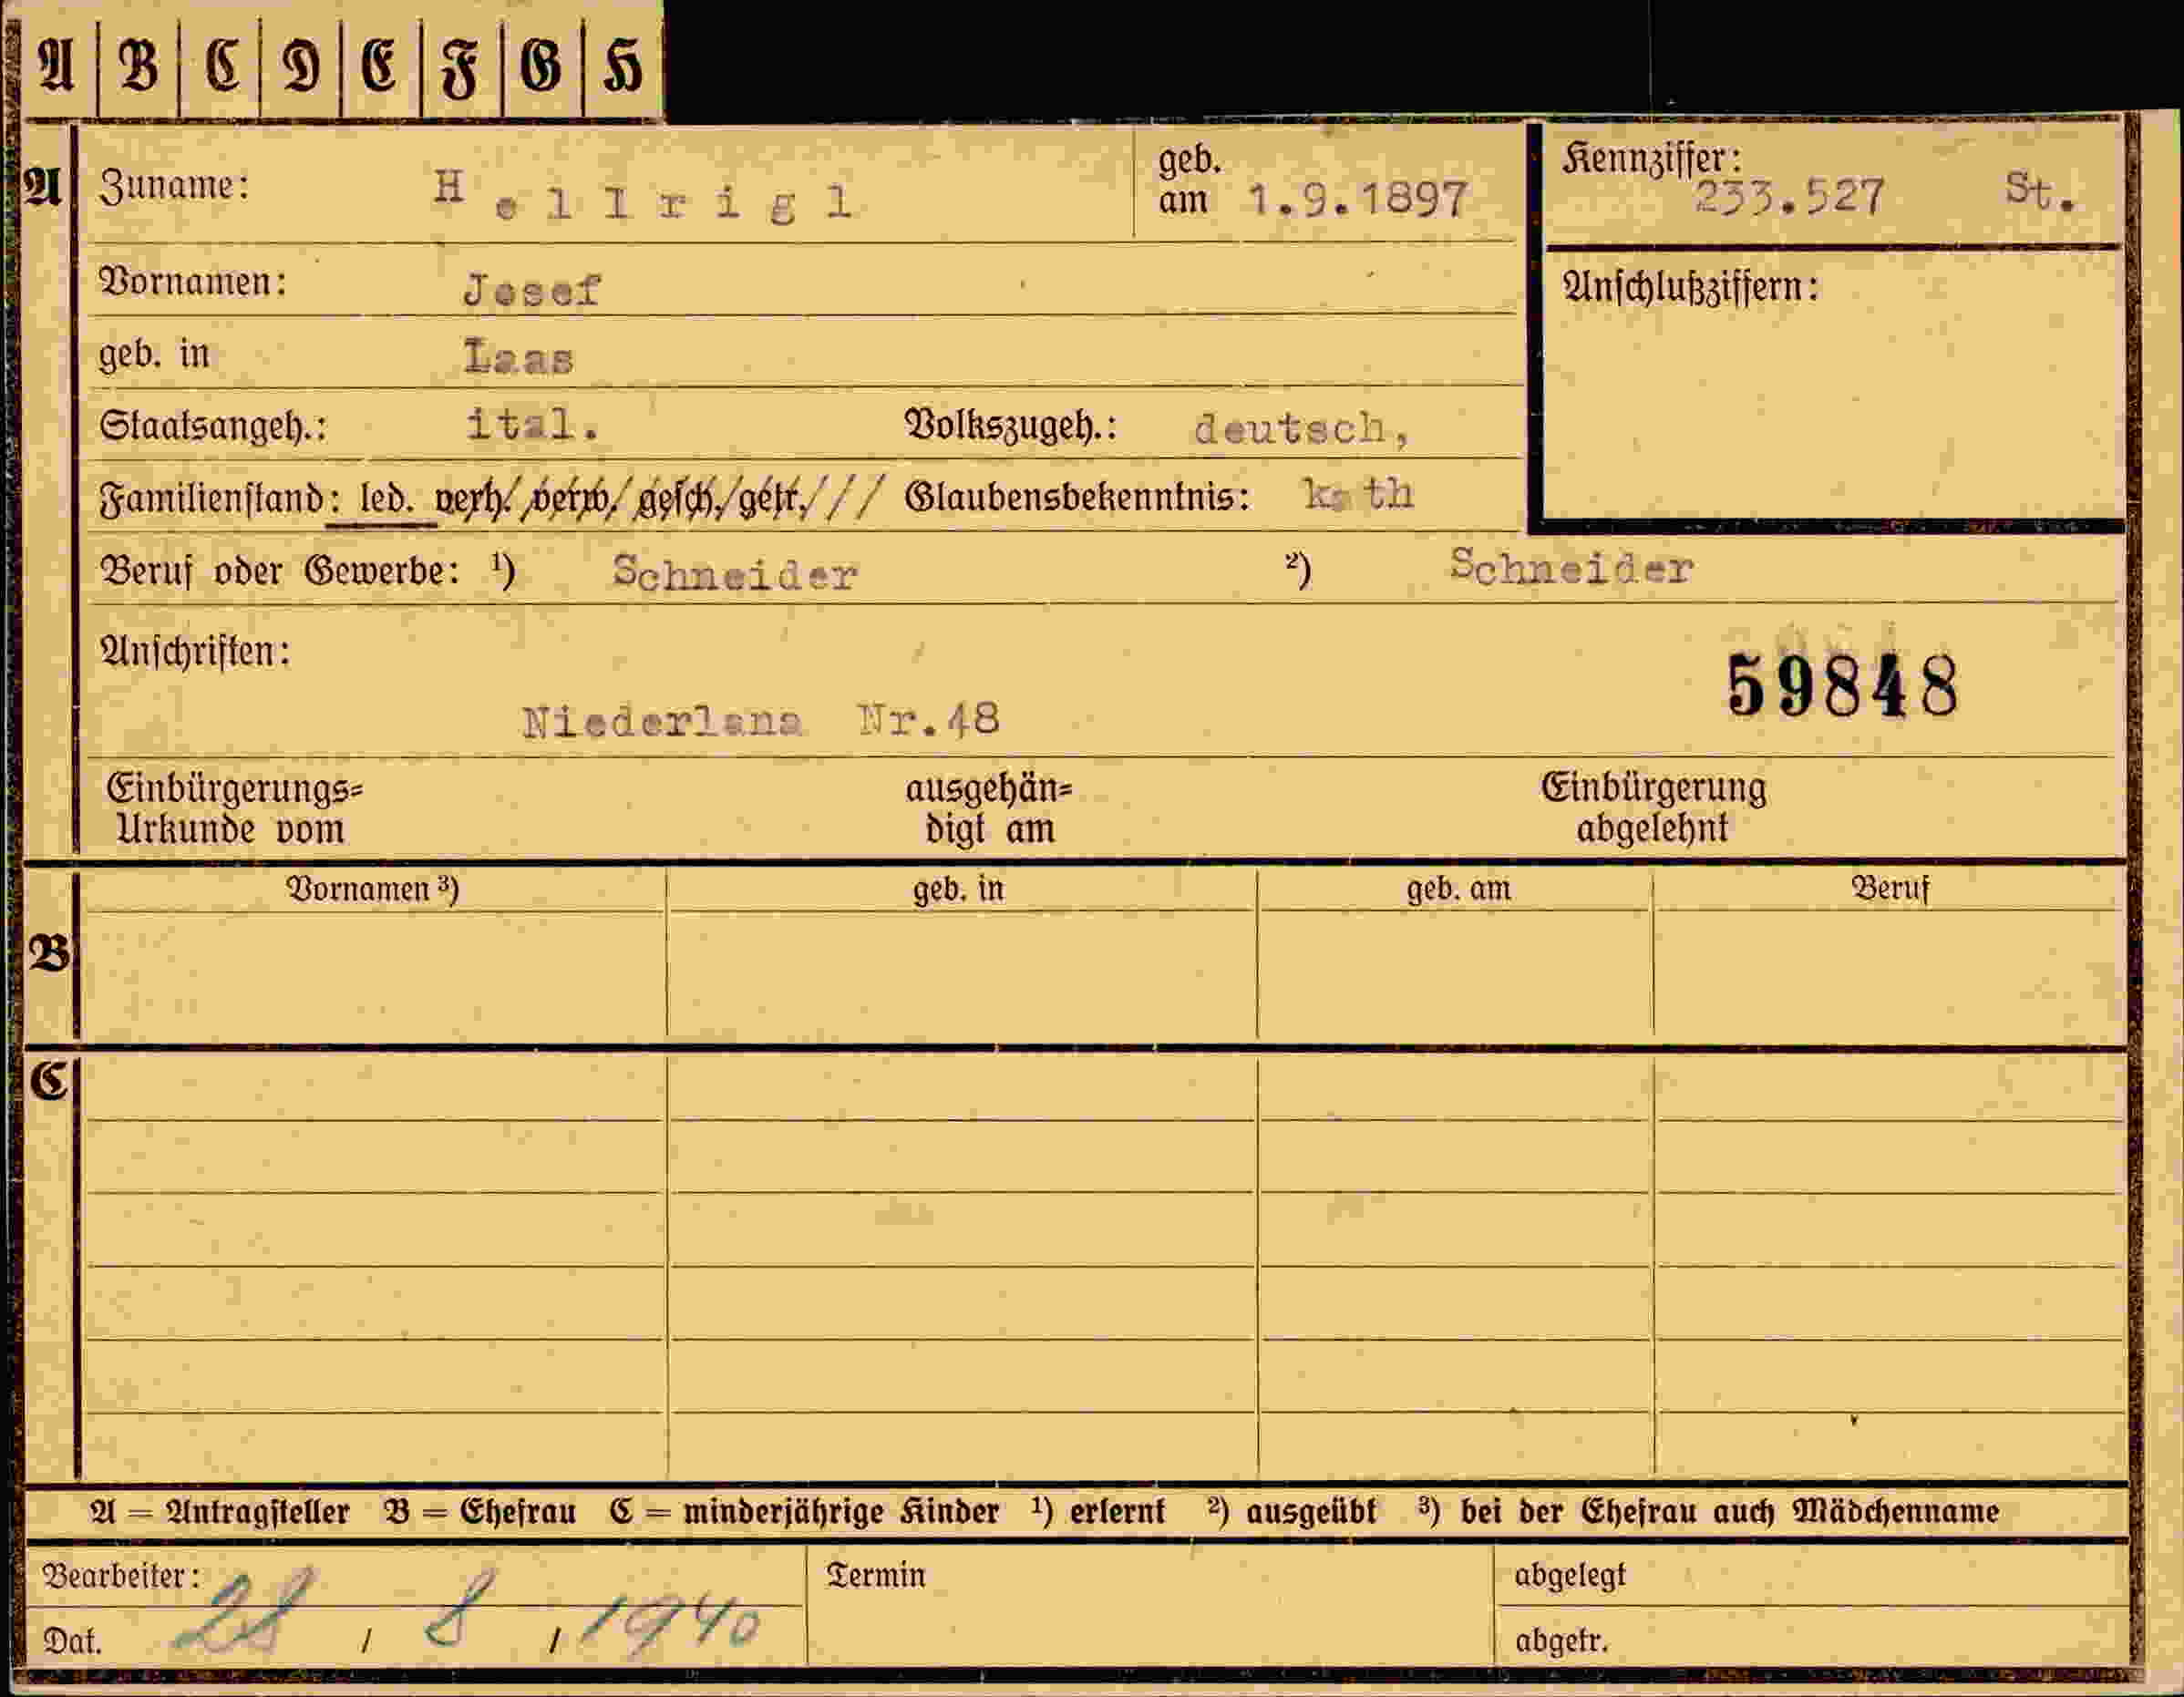 A B C D E F G H
A Zuname: Hellrigl geb. am 1.9.1897 Kennziffer: 233.527 St.
Vornamen: Josef Anschlußziffern:
geb. in Laas
Staatsangeh.: ital. Volkszugeh.: deutsch,
Familienstand: led. verh. verw. gesch. getr. / / / Glaubensbekenntnis: kath
Beruf oder Gewerbe: ¹) Schneider ²) Schneider
Anschriften:
59848
Niederlana Nr.48
Einbürgerungs= ausgehän= Einbürgerung
Urkunde vom digt am abgelehnt
Vornamen ³) geb. in geb. am Beruf
B
C
A = Antragsteller B = Ehefrau C = minderjährige Kinder ¹) erlernt ²) ausgeübt ³) bei der Ehefrau auch Mädchenname
Bearbeiter: Termin abgelegt
Dat. 28 / 8 / 1940 abgetr.